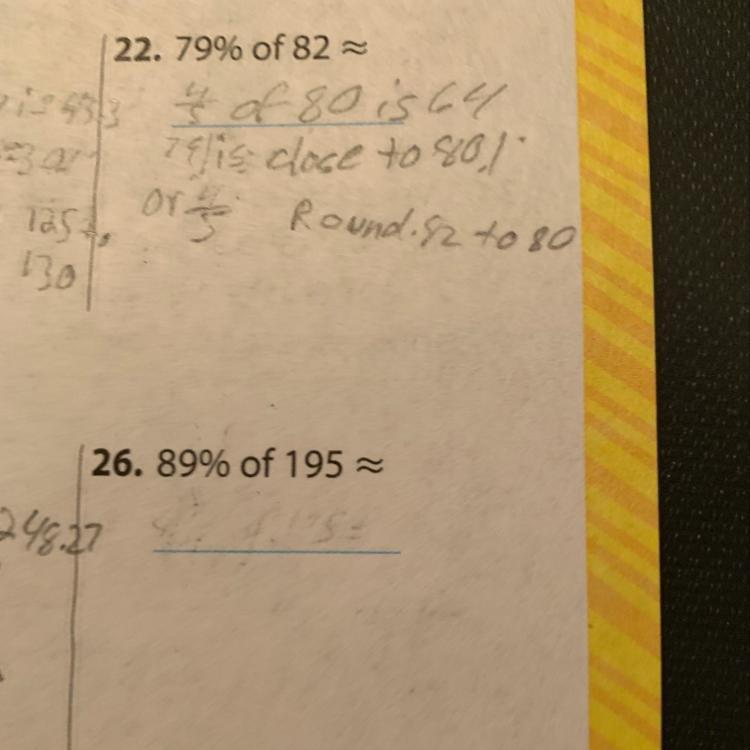 22. 79% of 82 ≈
4/5 of 80 is 64
79% is close to 80%
or 4/5 Round 82 to 80
130
26. 89% of 195 ≈
248.27